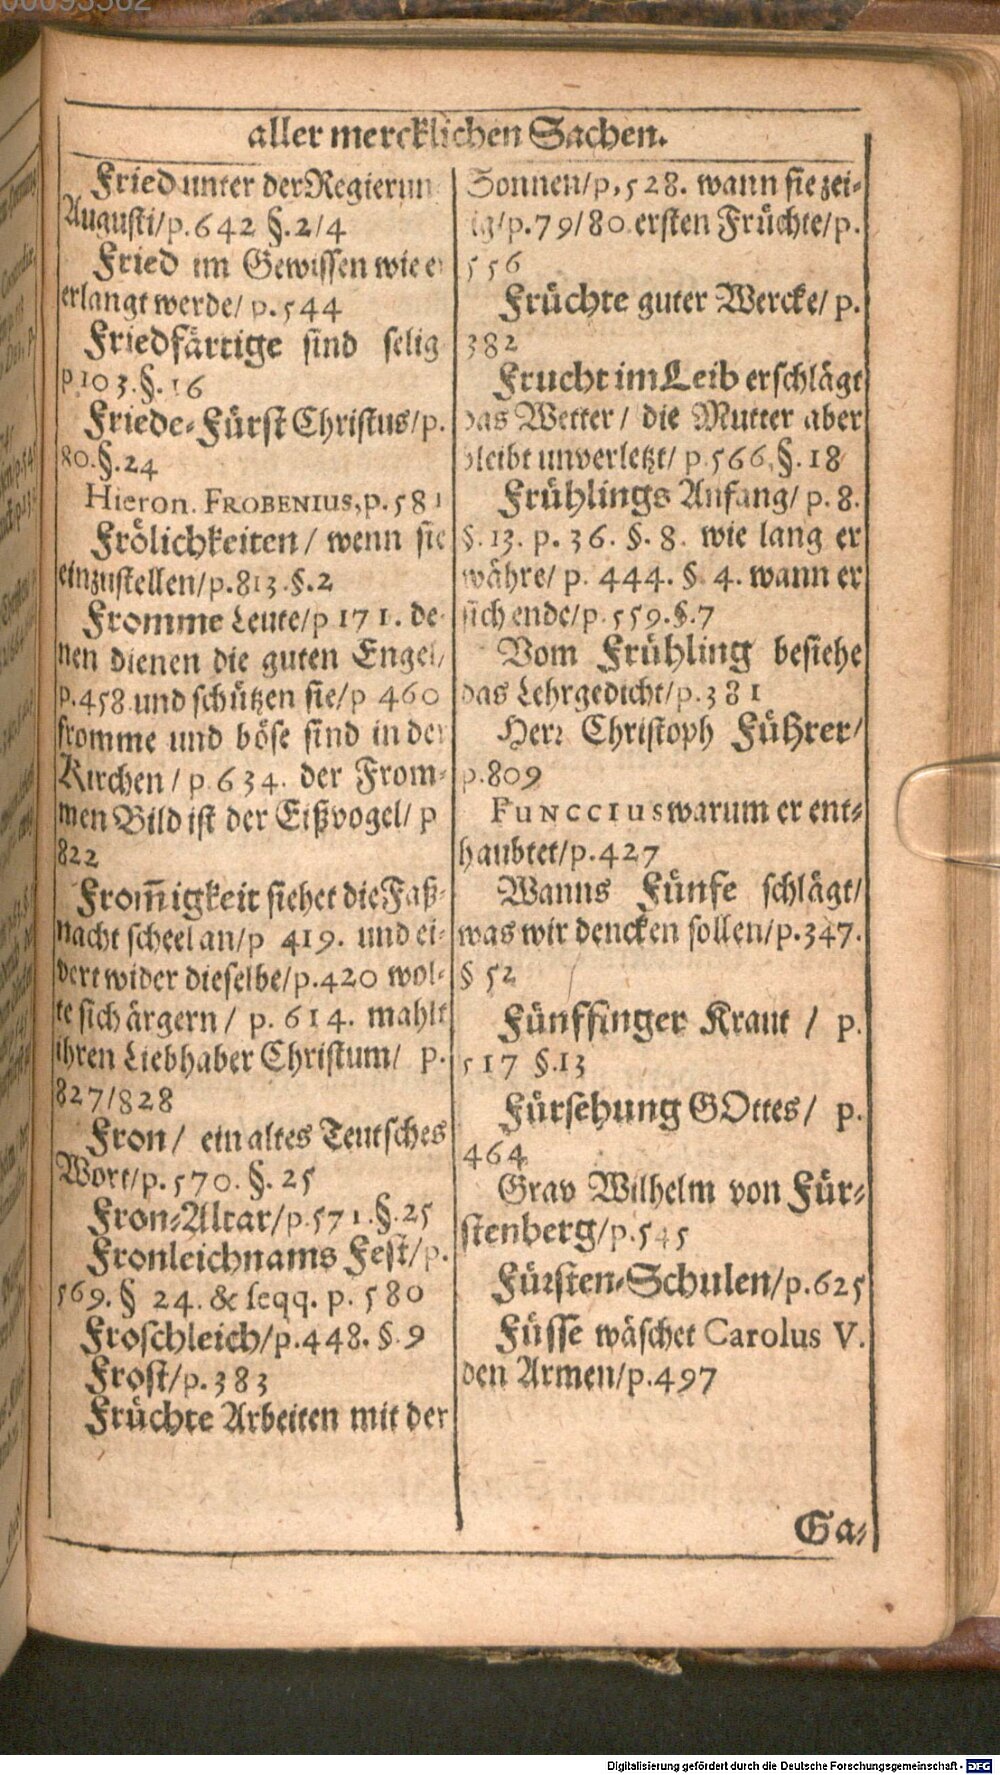 aller mercklichen Sachen.
Fried unter der Regierun
Augusti/p.642 §.2/4
Fried im Gewissen wie e
erlangt werde/ p.544
Friedfärtige sind selig
p 103.§.16
Friede-Fürst Christus/p.
80.§.24
Hieron. FROBENIUS, p.581
Frölichkeiten/ wenn sie
einzustellen/p.813.§.2
Fromme Leute/p 171. de-
nen dienen die guten Engel/
p.458.und schützen sie/p 460
fromme und böse sind in der
Kirchen/ p.634. der From-
men Bild ist der Eißvogel/ p
822
From̃igkeit siehet die Faß-
nacht scheel an/p 419. und ei-
vert wider dieselbe/p.420 wol-
te sich ärgern/ p. 614. mahlt
ihren Liebhaber Christum/ p.
827/828
Fron/ ein altes Teutsches
Wort/p.570. §. 25
Fron-Altar/p.571.§.25
Fronleichnams Fest/p.
569. § 24. & seqq. p. 580
Froschleich/p.448. §.9
Frost/p.383
Früchte Arbeiten mit der
Sonnen/p.528. wann sie zei-
ig/p.79/80 ersten Früchte/p.
556
Früchte guter Wercke/ p.
382
Frucht im Leib erschlägt
das Wetter/ die Mutter aber
bleibt unverletzt/ p.566.§.18
Frühlings Anfang/ p.8.
§.13. p.36. §.8. wie lang er
währe/ p. 444. § 4. wann er
sich ende/p.559.§.7
Vom Frühling besiehe
das Lehrgedicht/p.381
Herr Christoph Führer/
p.809
FUNCCIUS warum er ent-
haubtet/p.427
Wanns Fünfe schlägt/
was wir dencken sollen/p.347.
§ 52
Fünffinger Kraut / p.
517 §.13
Fürsehung GOttes/ p.
464
Grav Wilhelm von Für-
stenberg/p.545
Fürsten-Schulen/p.625
Füsse wäschet Carolus V.
den Armen/p.497
Ga-
Digitalisierung gefördert durch die Deutsche Forschungsgemeinschaft - DFG